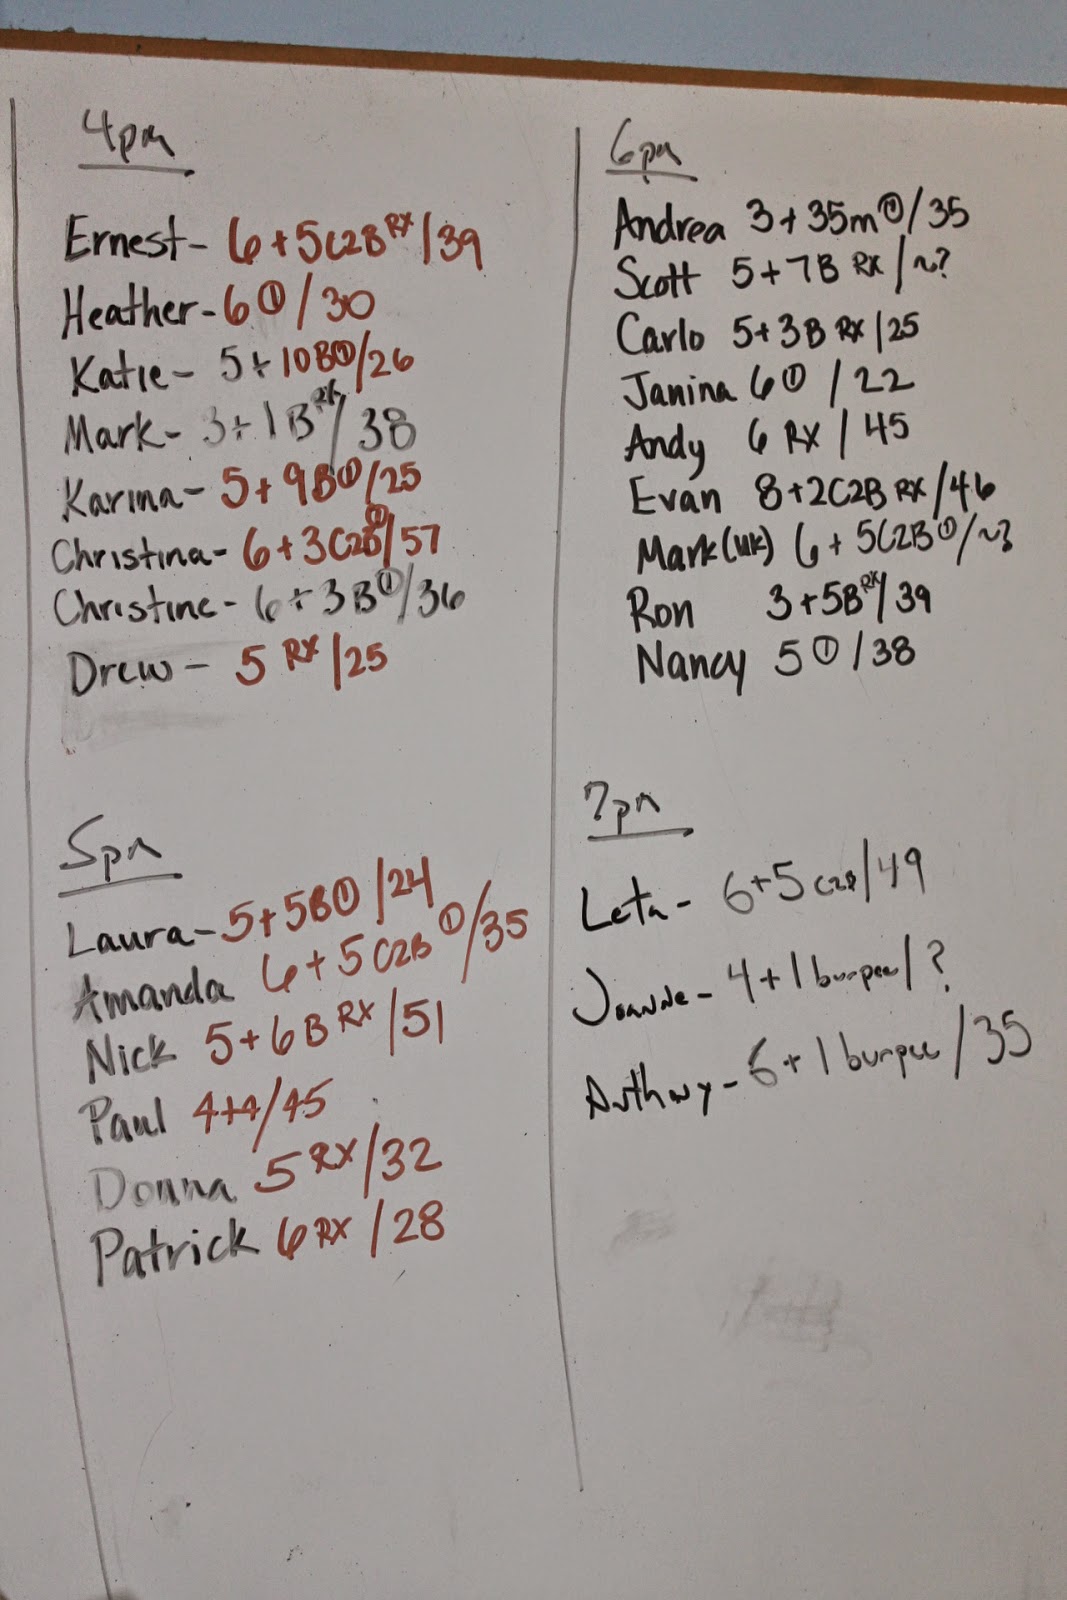 4pm
Ernest- 6+5C2B RX/39
Heather-6①/30
Katie- 5+10B①/26
Mark- 3+1B RX/38
Karina- 5+9B①/25
Christina- 6+3C2B①/57
Christine- 6+3B①/36
Drew- 5 RX/25
5pm
Laura-5+5B①/24
Amanda 6+5C2B①/35
Nick 5+6B RX/51
Paul 4+4/45
Donna 5 RX/32
Patrick 6 RX/28
6pm
Andrea 3+35m①/35
Scott 5+7B RX/~?
Carlo 5+3B RX/25
Janina 6①/22
Andy 6 RX/45
Evan 8+2C2B RX/46
Mark(UK) 6+5C2B①/~?
Ron 3+5B RX/39
Nancy 5①/38
7pm
Leta- 6+5 C2B/49
Joanne- 4+1burpee/?
Anthony- 6+1burpee/35